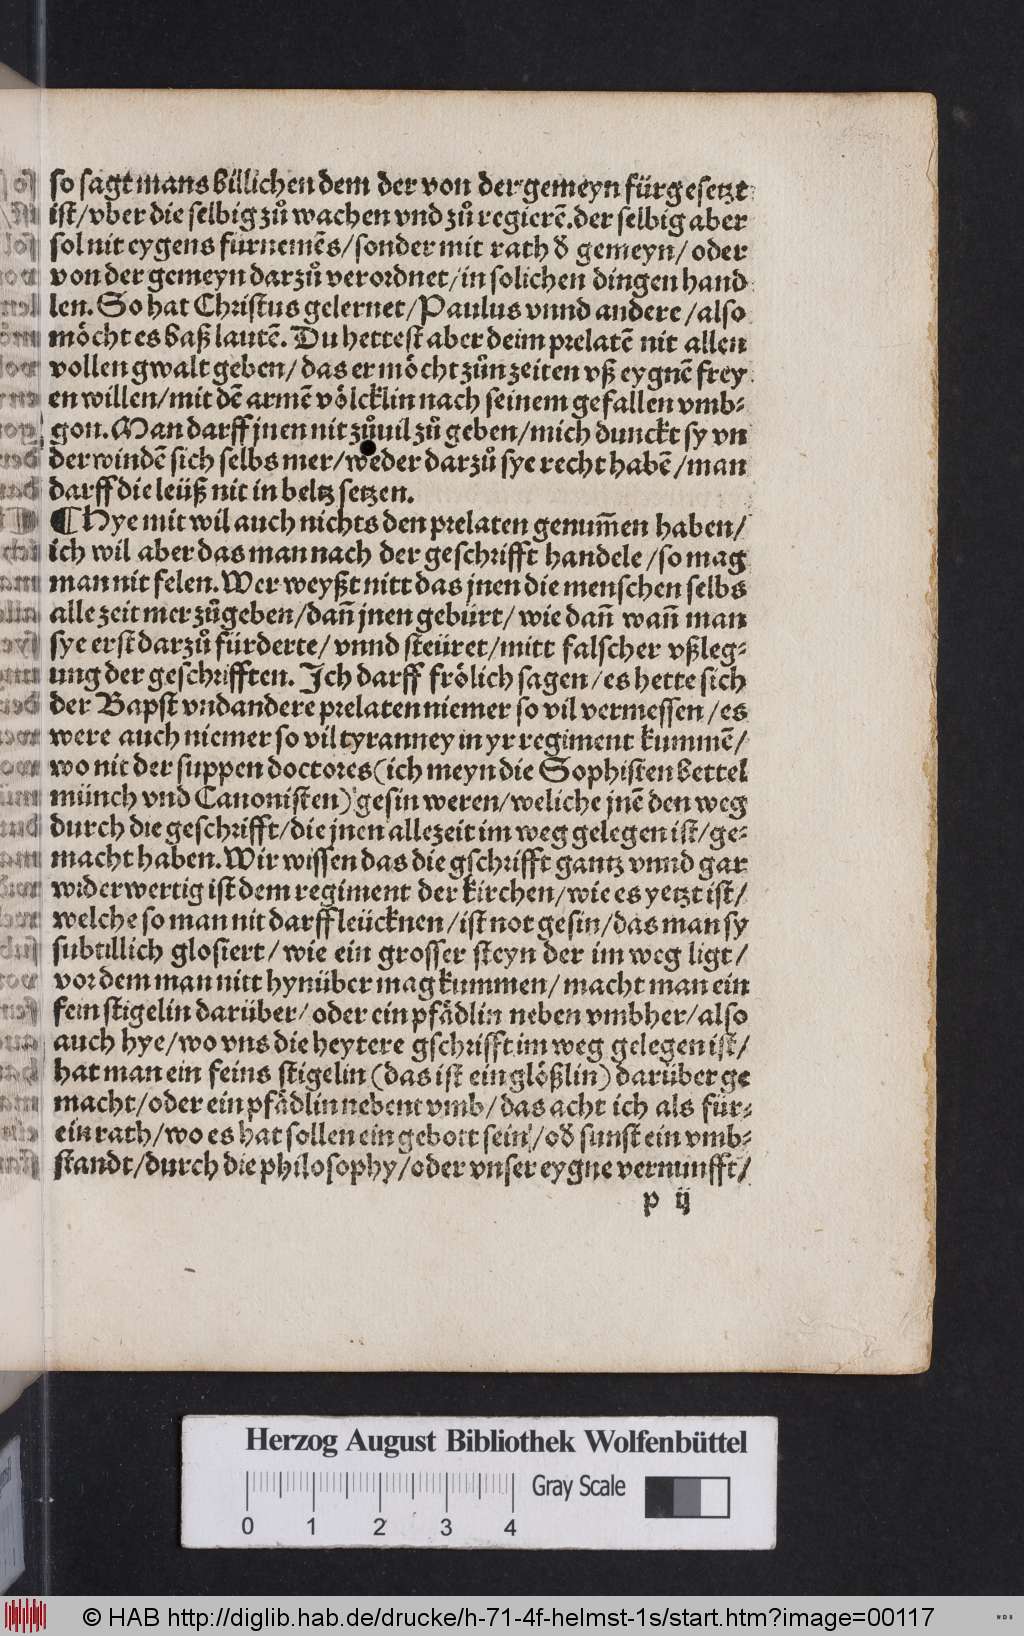 so sagt mans billichen dem der von der gemeyn fürgesetzt
ist/vber die selbig zů wachen vnd zů regierē. der selbig aber
sol nit eygens fürnemēs/sonder mit rath ď gemeyn/oder
von der gemeyn darzů verordnet/in solichen dingen hand
len. So hat Christus gelernet/Paulus vnnd andere/also
möcht es baß lautē. Du hettest aber deim prelatē nit allen
vollen gwalt geben/das er möcht zůn zeiten vß eygnē frey
en willen/mit dē armē völcklin nach seinem gefallen vmb⸗
gon. Man darff jnen nit zůuil zů geben/mich dunckt sy vn
derwindē sich selbs mer/weder darzů sye recht habē/man
darff die leüß nit in beltz setzen.
¶ Hye mit wil auch nichts den prelaten genum̄en haben/
ich wil aber das man nach der geschrifft handele/so mag
man nit felen. Wer weyßt nitt das jnen die menschen selbs
alle zeit mer zůgeben/dan̄ jnen gebürt/wie dan̄ wan̄ man
sye erst darzů fürderte/vnnd steüret/mitt falscher vßleg⸗
ung der geschrifften. Ich darff frölich sagen/es hette sich
der Bapst vndandere prelaten niemer so vil vermessen/es
were auch niemer so vil tyranney in yr regiment kummē/
wo nit der suppen doctores (ich meyn die Sophisten bettel
münch vnd Canonisten) gesin weren/weliche jnē den weg
durch die geschrifft/die jnen allezeit im weg gelegen ist/ge⸗
macht haben. Wir wissen das die gschrifft gantz vnnd gar
widerwertig ist dem regiment der kirchen/wie es yetzt ist/
welche so man nit darff leücknen/ist not gesin/das man sy
subtillich glosiert/wie ein grosser steyn der im weg ligt/
vor dem man nitt hynüber mag kummen/macht man ein
fein stigelin darüber/oder ein pfädlin neben vmbher/also
auch hye/wo vns die heytere gschrifft im weg gelegen ist/
hat man ein feins stigelin (das ist ein glößlin) darüber ge
macht/oder ein pfädlin nebent vmb/das acht ich als für⸗
ein rath/wo es hat sollen ein gebott sein/oď sunst ein vmb⸗
standt/durch die philosophy/oder vnser eygne vernunfft/
p ij
Herzog August Bibliothek Wolfenbüttel
Gray Scale
0 1 2 3 4
© HAB http://diglib.hab.de/drucke/h-71-4f-helmst-1s/start.htm?image=00117
WDB